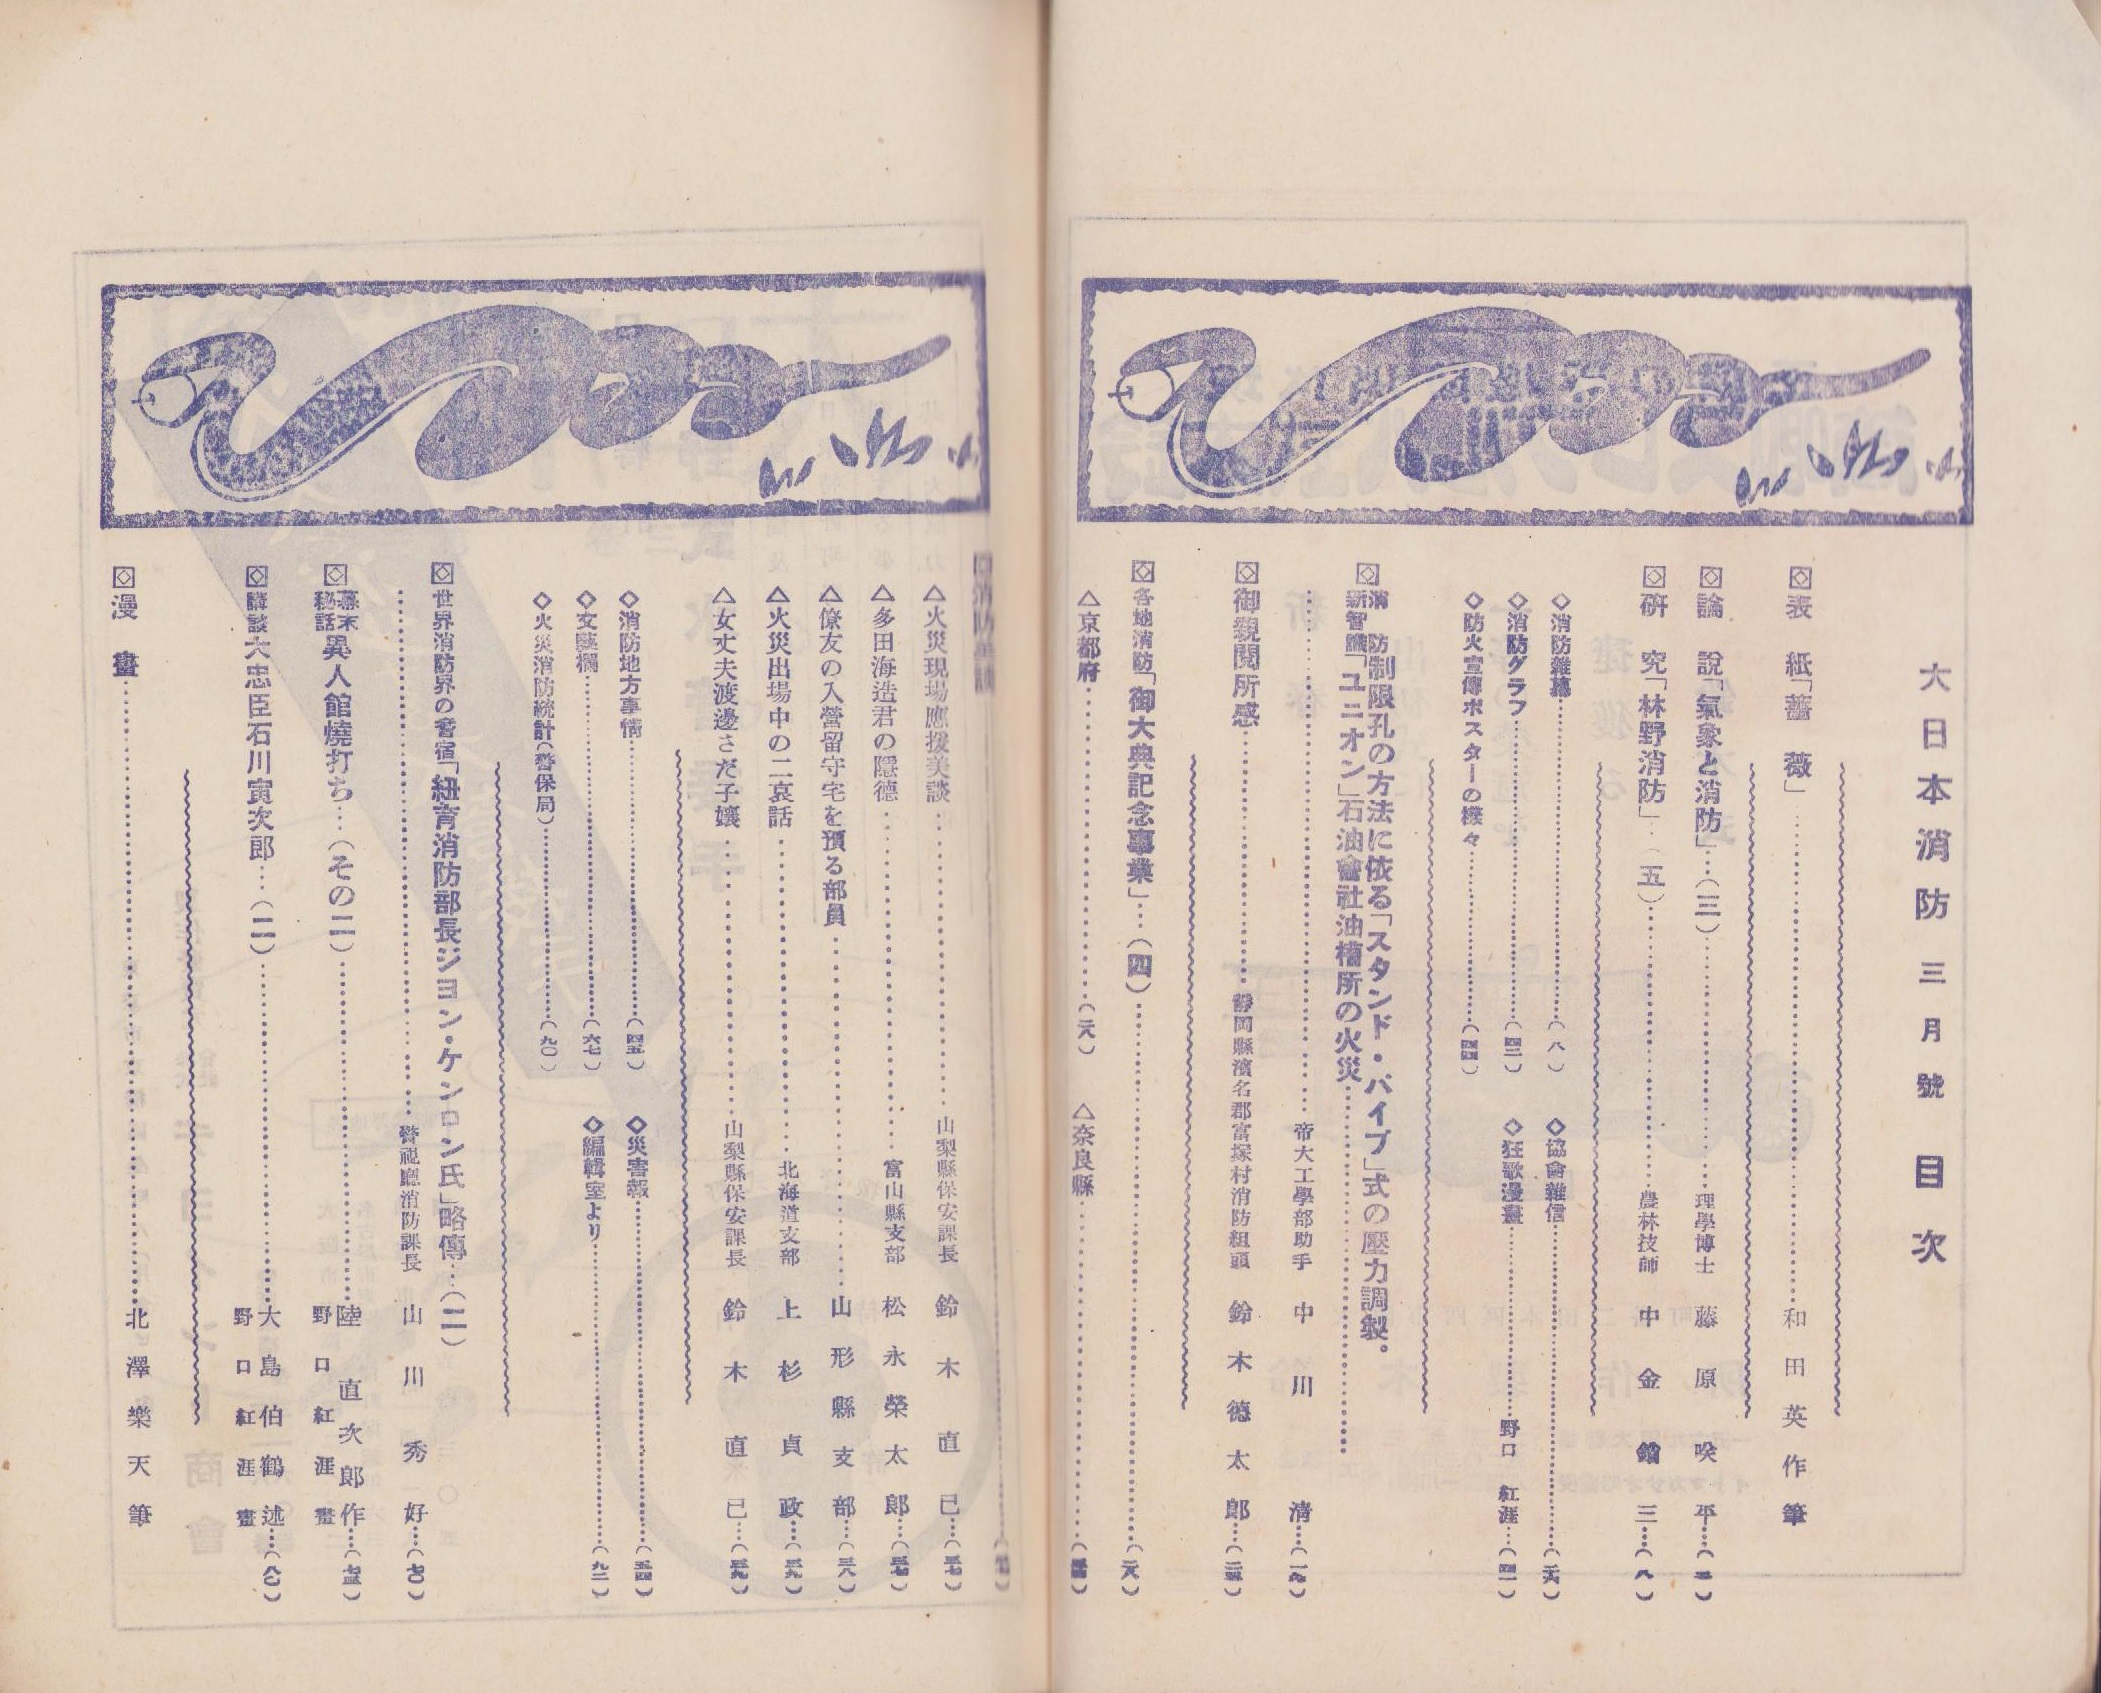 大日本消防 三月號 目次
表紙「薔薇」……和田英作筆
論說「氣象と消防」…(三)……理學博士 藤原咲平…
硏究「林野消防」…(五)……農林技師 中金 三…(八)
◇消防雜爼……(八)
◇協會雜信……
◇消防グラフ……(四一)
◇狂歌漫畫……野口紅涯…(四一)
◇防火宣傳ポスターの樣々……(四四)
消防新智識
制限孔の方法に依る「スタンド・パイプ」式の壓力調製。
「ユニオン」石油會社油槽所の火災……
……帝大工學部助手 中川 淸…
御親閱所感……靜岡縣濱名郡富塚村消防組頭 鈴木德太郎…
各地消防「御大典記念事業」…(四)……
△京都府……
△奈良縣……
△火災現場應援美談……山梨縣保安課長 鈴木直巳…(三七)
△多田海造君の隱德……富山縣支部 松永榮太郎…(三七)
△僚友の入營留守宅を預る部員……山形縣支部…(三八)
△火災出場中の二哀話……北海道支部 上杉貞政…(三九)
△女丈夫渡邊さだ子孃……山梨縣保安課長 鈴木直巳…(三九)
◇消防地方事情……(四五)
◇災害報……(五四)
◇文藝欄……(六七)
◇編輯室より……(九二)
◇火災消防統計(警保局)……(九〇)
世界消防界の耆宿「紐育消防部長ジヨン・ケンロン氏」略傳…(二)
……警視廳消防課長 山川秀好…(七〇)
幕末秘話 異人館燒打ち…(その二)……陸直次郎作…(七三)
野口紅涯畫
講談 大忠臣石川寅次郎…(二)……大島伯鶴述…(八〇)
野口紅涯畫
漫畫……北澤樂天筆